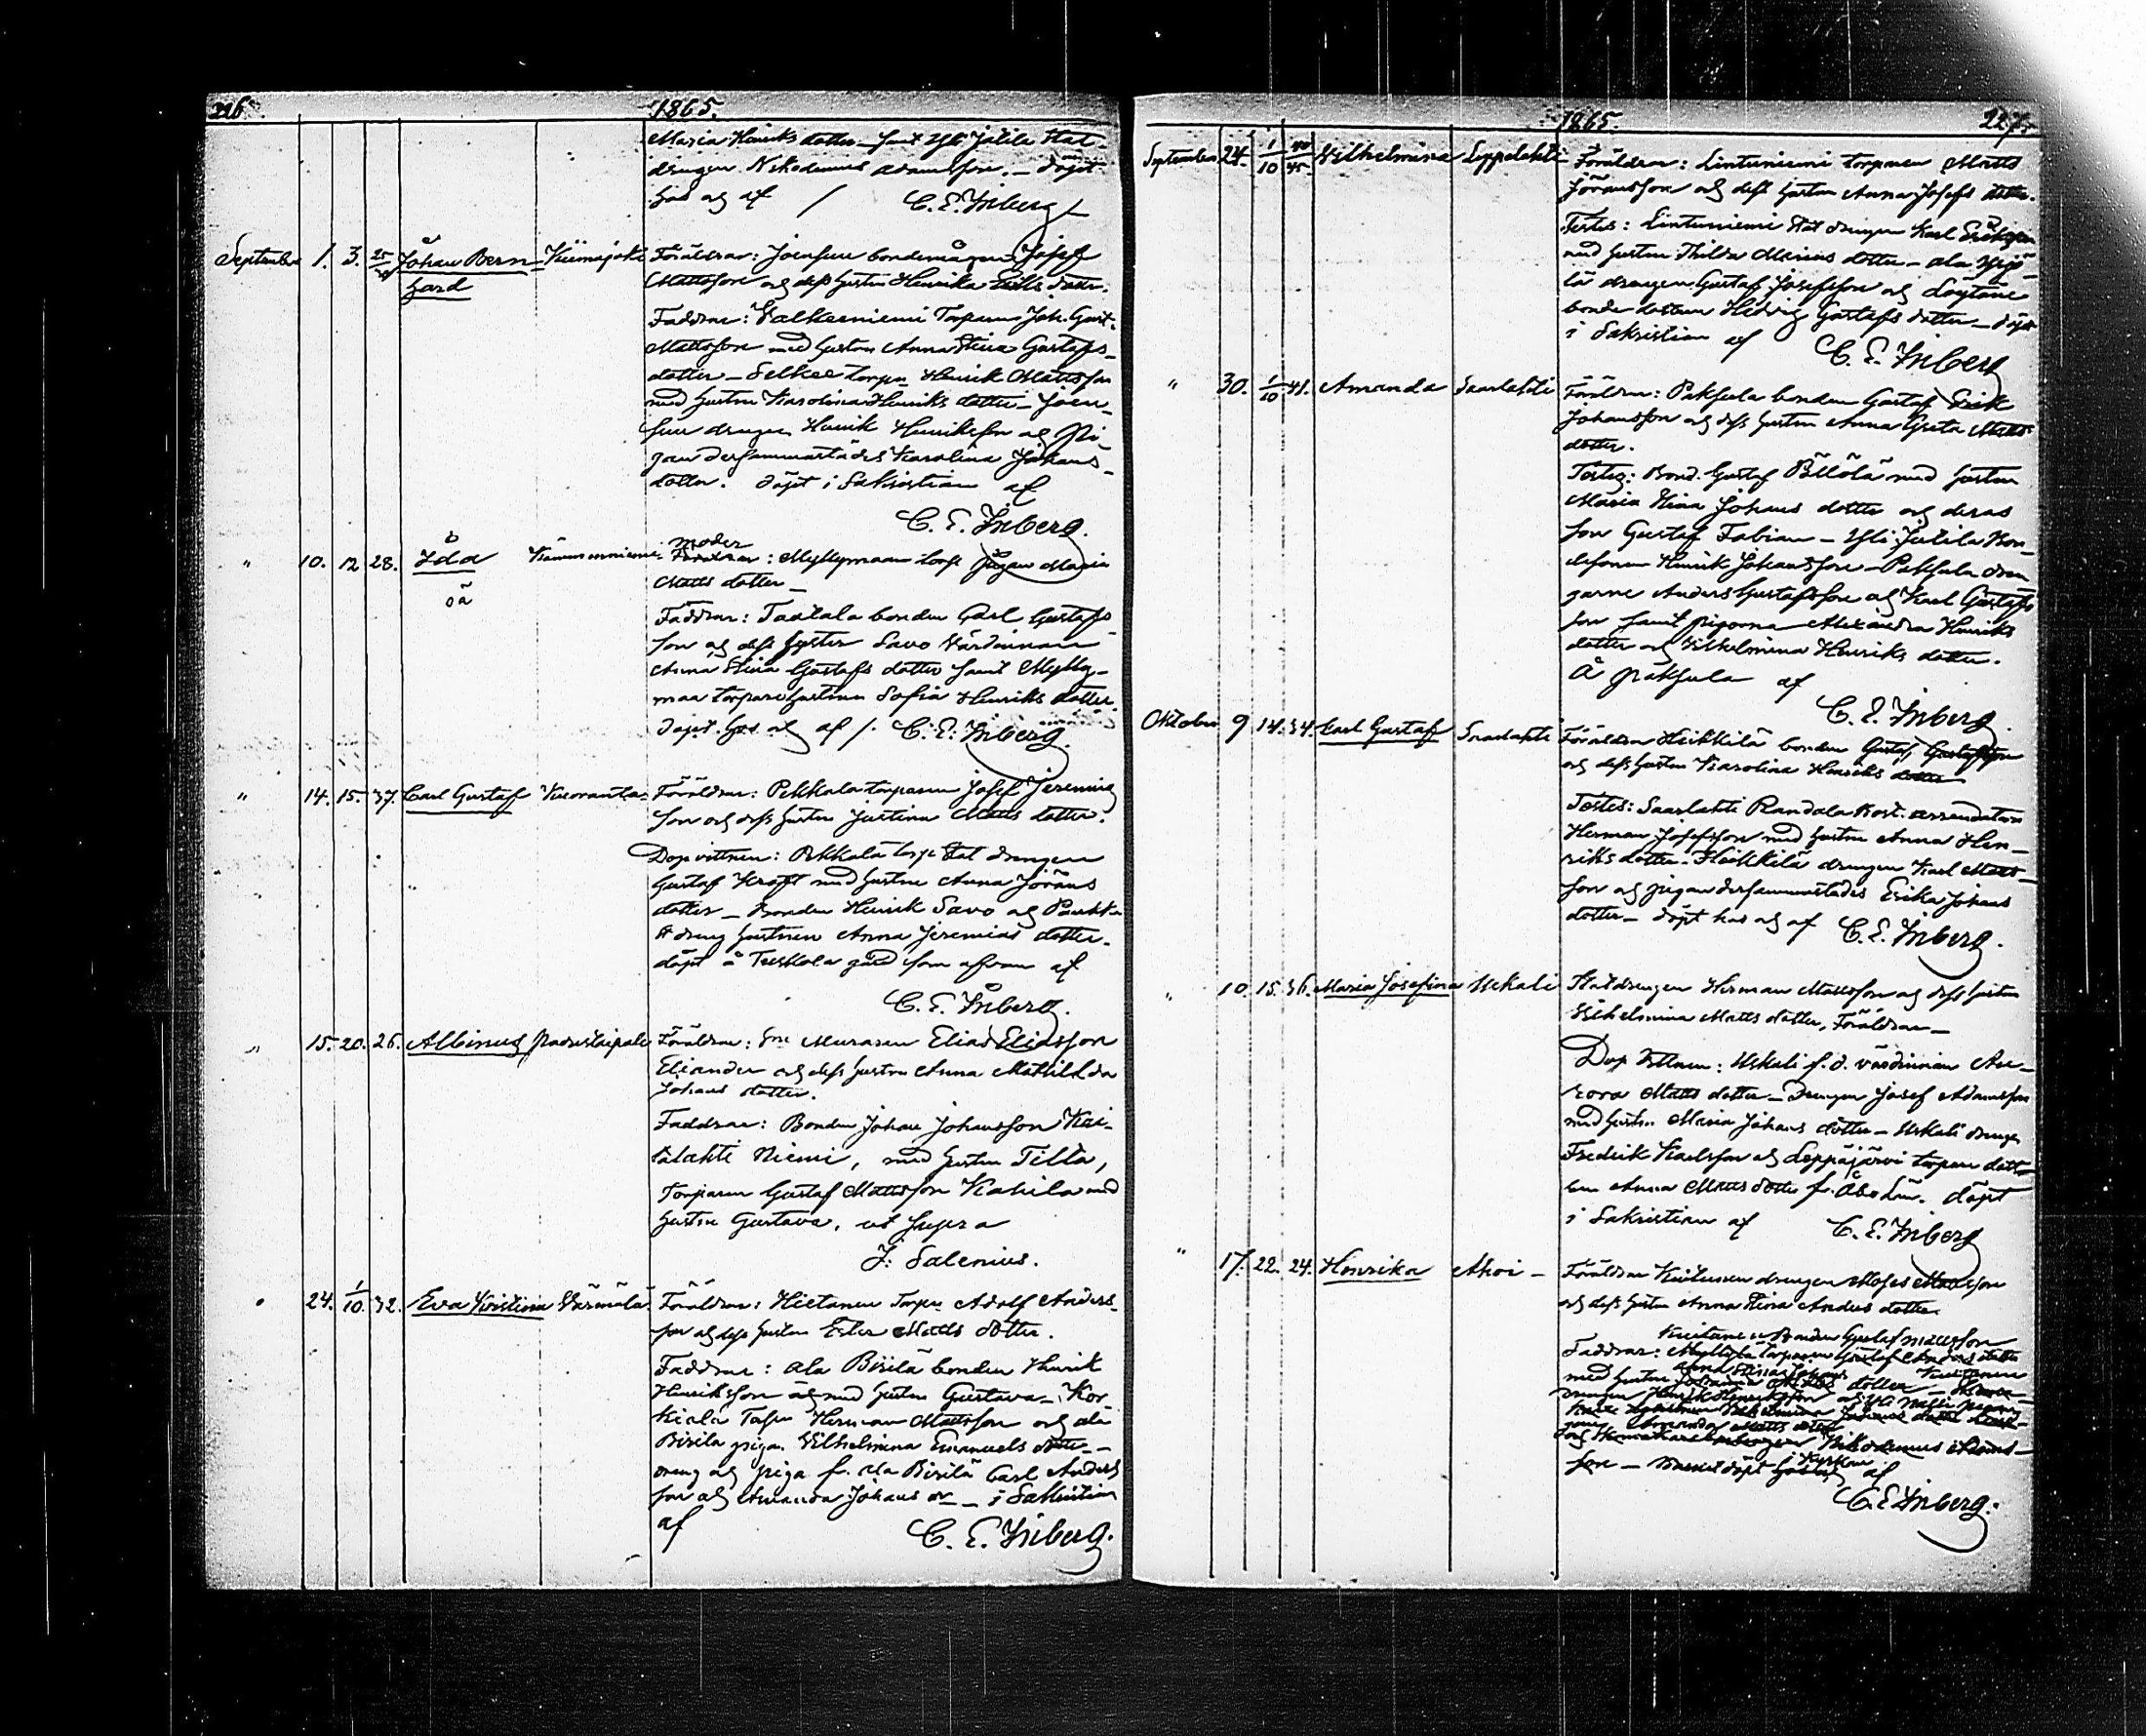 226.
1865.
Maria Henriksdotter – samt Yli Jutila Stat-
drengen Nikodemus Adamsson. – döpt
hos og af / C. E. Inberg
September 1. 3. 25/30 Johan Bern- Kiimajoki Föräldrar: Joensuu bondemågen Josef
hard Mattsson og dess hustru Henrika Eriks dotter.
Faddrar: Valkeeniemi Torparen Joh. Gust.
Mattsson med hustru Anna Stina Gustafs-
dotter – Selkee torpn Henrik Mattsson
med hustru Karolina Henriks dotter – Joen-
suu drengen Henrik Henriksson og Pi-
gan dersammastädes Karolina Johans-
dotter. döpt i Sakristian af
C. E. Inberg.
" 10. 12 28. Ida Kämmenniemi moder
Föräldrar: Myllymaan torp Pigan Maria
oä Matts dotter –
Faddrar: Taatala bonden Carl Gustafs-
son og dess syster Savo Värdinnan
Anna Stina Gustafs dotter samt Mylly-
maa torpare hustrun Sofia Henriks dotter.
döpt hos og af /. C. E. Inberg.
" 14. 15. 37. Carl Gustaf Kuoranta Föräldrar: Pekkala torparen Josef Jeremias
son og dess hustru Justina Matts dotter.
Dopvittnen: Pekkala torp Stat drengen
Gustaf Kraft med hustru Anna Jörans
dotter – Bonden Henrik Savo og
dreng hustrun Anna Jeremias dotter.
döpt å Teiskola gård som ofvan af
C. E. Inberg.
" 15. 20. 26. Albinus Paarlaipale Föräldrar: Muraren Elias Eliasson
Eliander og dess hustru Anna Mathilda
Johans dotter.
Faddrar: Bonden Johan Johansson Kai-
talahti Niemi, med hustru Tilta,
Torparen Gustaf Mattsson Kahila med
hustru Gustava, ut supra
J. Salenius.
" 24. 1/10. 32. Eva Kristina Värmälä Föräldrar: Hietanen Torpn Adolf Anders-
son og dess hustru Ester Matts dotter.
Faddrar: ala Birilä bonden Henrik
Henriksson og med hustru Gustava – Kor-
kiala Torpn Herman Mattsson og ala
Birila piga Vilhelmina Emanuels dotter –
dreng og piga fr. ala Birilä Carl Anders
son og Amanda Johans dr – i Sakristian
af C. E. Inberg.
1865. 227.
September 24. 1/10 40/45. Wilhelmina Leppelahti Föräldrar: Lintuniemi torparen Matts
Jöransson og dess hustru Anna Josefs dotter.
Testes: Lintuniemi Stat drengen Karl Eriksson
med hustru Thilda Marias dotter – ala
drengen Gustaf Josefsson og Löytäne
bonde dottern Hedvig Gustafs dotter – döpt
i Sakristian af C. E. Inberg
" 30. 1/10 41. Amanda Saarlahti Föräldrar: Paksula bonden Gustaf Erik
Johansson og dess hustru Anna Greta Matts
dotter.
Testes: Bond. Gustaf Pöllölä med hustru
Maria Stina Johans dotter og deras
son Gustaf Fabian – Yli Jutila Bon-
desonen Henrik Johansson – Paksula dren
garne Anders Gustafsson og Karl Gustafs
son samt pigorna Alexandra Henriks
dotter og Vilhelmina Henriks dotter.
Å Paksula af
C. E. Inberg
Oktober 9 14. 34. Carl Gustaf Saarlahti Föräldrar Heikkilä bonden Gustaf Gustafsson
og dess hustru Karolina Henriks dotter
Testes: Saarlahti Randala Rust. arrendatorn
Herman Josefsson med hustru Anna Hen-
riks dotter – Heikkilä drengen Karl Matts-
son og pigan dersammastädes Erika Johans
dotter – döpt hos og af C. E. Inberg.
" 10. 15. 36. Maria Josefina Uskali Statdrengen Herman Mattsson og dess hustru
Vilhelmina Matts dotter, Föräldrar –
Dop Vittnen: Uskali f. d. värdinnan Au-
rora Matts dotter – Drengen Josef Adamsson
med hustru Maria Johans dotter – Uskali drengen
Fredrik Karlsson og Leppäjärvi torpare dott-
ern Anna Matts dotter fr. Åbo Län. döpt
i Sakristian af C. E. Inberg
" 17. 22. 24. Henrika Ahoi – Föräldrar Kuitunen drengen Moses Mattsson
og dess hustru Anna Stina Anders dotter.
Kuitanen Bonden Gustaf Mattsson
Faddrar: torparen Gustaf Anders
med hustru Anna Stina Johans dotter –
drengen Henrik Henriksson
Nikodemus Adams-
son – Barnet döpt i Kyrkan af
C. E. Inberg.